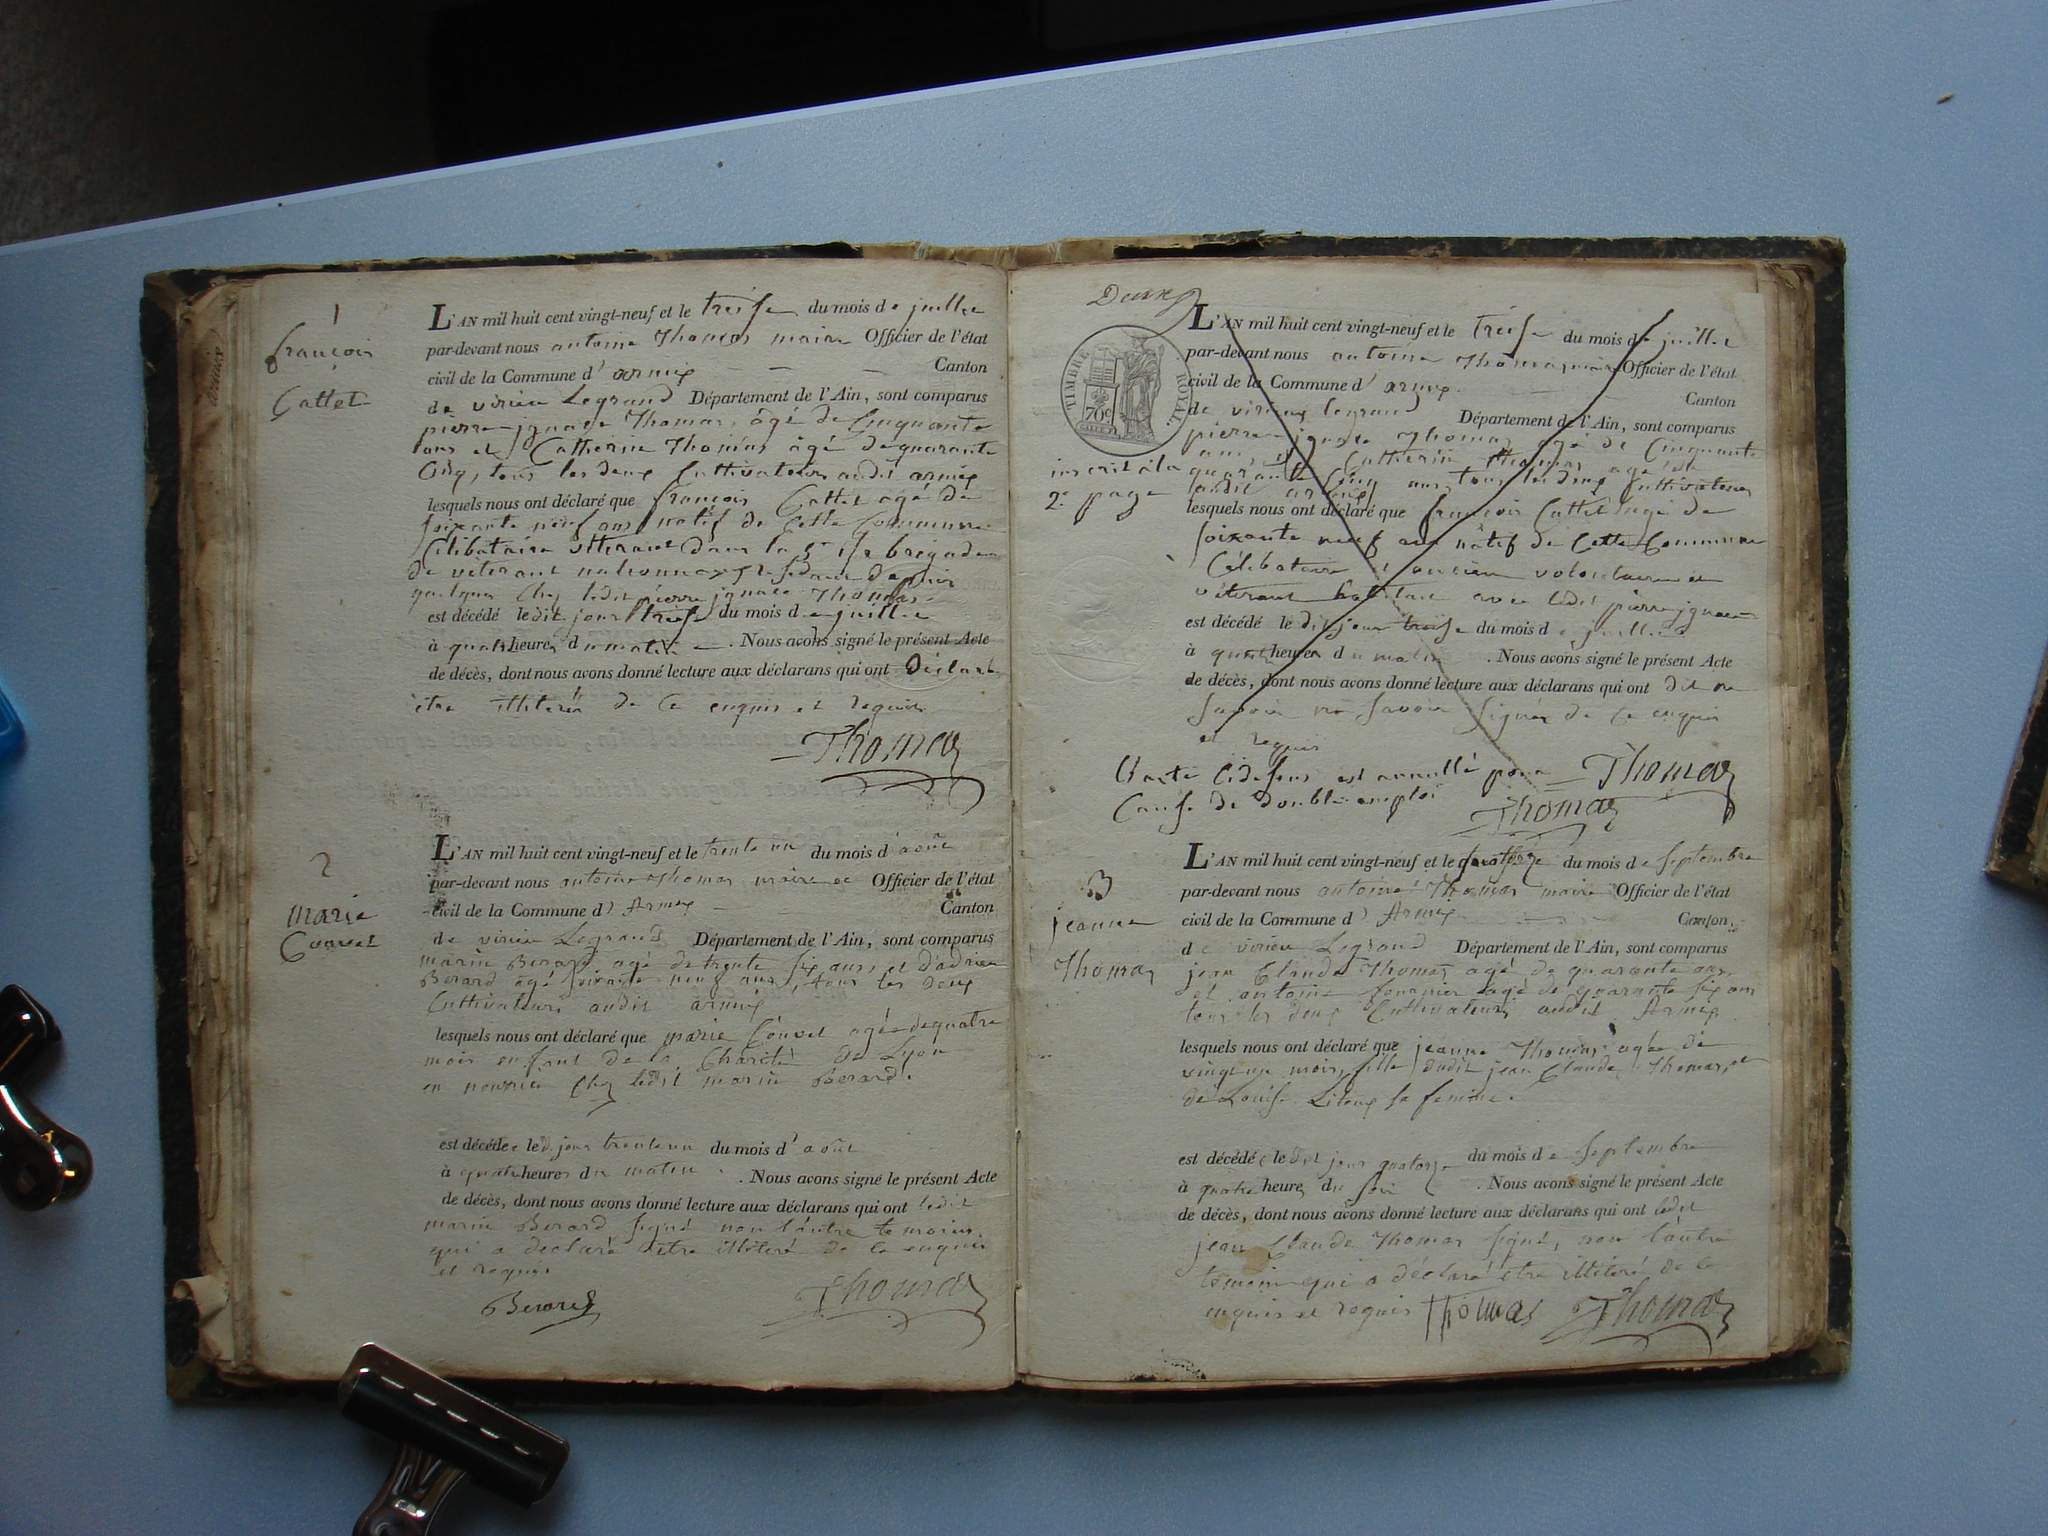 1
françois
Cattet
L'AN mil huit cent vingt-neuf et le treise du mois de juillet
par-devant nous antoine Thomas maire Officier de l'état
civil de la Commune d'armix Canton
de virieu Legrand Département de l'Ain, sont comparus
pierre ignace Thomas, âgé de Cinquante
ans et Catherin Thomas âgé de quarante
Cinq, tous les deux Cultivateurs audit armix
lesquels nous ont déclaré que françois Cattet agé de
soixante neuf ans natif de Cette Commune
Célibataire veterant dans la brigade
de veterant
quelque Chez ledit pierre ignace Thomas.
est décédé ledit jour treise du mois de juillet
à quatre heures du matin. Nous avons signé le présent Acte
de décès, dont nous avons donné lecture aux déclarans qui ont Déclaré
être illiteré de Ce enquis et requis
Thomas
2
marie
Couvet
L'AN mil huit cent vingt-neuf et le trente un du mois d'août
par-devant nous antoine Thomas maire et Officier de l'état
civil de la Commune d'Armix Canton
de virieu Legrand Département de l'Ain, sont comparus
marin Berard agé de trente six ans, et d'adrien
Berard agé soixante neuf ans, tous les deux
Cultivateurs audit armix
lesquels nous ont déclaré que marie Couvet agée de quatre
mois enfant de la Charité de Lyon
en nourice Chez ledit marin Berard.
est décédée ledit jour trente un du mois d'août
à quatre heures du matin. Nous avons signé le présent Acte
de décès, dont nous avons donné lecture aux déclarans qui ont ledit
marin Berard signé non l'autre temoins
qui a declaré etre illiteré de Ce enquis
et requis
Berard Thomas
Deux
TIMBRE ROYAL
70c
inscrit à la
2e page
L'AN mil huit cent vingt-neuf et le treise du mois de juillet
par-devant nous antoine Thomas maire Officier de l'état
civil de la Commune d'armix. Canton
de virieux legrand Département de l'Ain, sont comparus
pierre ignace Thomas agé de Cinquante
ans, et Catherin Thomas agé de
quarante Cinq ans tous les deux Cultivateurs
audit armix
lesquels nous ont déclaré que françois Cattet agé de
soixante neuf ans natif de Cette Commune
Célibataire et ancien volontaire et
véterant habitant avec ledit pierre ignace
est décédé le dit jour treise du mois de juillet
à quatre heures du matin. Nous avons signé le présent Acte
de décès, dont nous avons donné lecture aux déclarans qui ont dit ne
savoir ne savoir signer de Ce enquis
et requis
L'acte Cidesus est annullé pour Thomas
Cause de double emploi Thomas
3
jeanne
Thomas
L'AN mil huit cent vingt-neuf et le quatorze du mois de Septembre
par-devant nous antoine Thomas maire Officier de l'état
civil de la Commune d'Armix Canton
de virieu Legrand Département de l'Ain, sont comparus
jean Claude Thomas agé de quarante ans
et antoine agé de quarante six ans
tous les deux Cultivateurs audit Armix
lesquels nous ont déclaré que jeanne Thomas agée de
vingt un mois, fille dudit jean Claude Thomas, et
de Louise sa femme.
est décédée ledit jour quatorze du mois de Septembre
à quatre heures du soir. Nous avons signé le présent Acte
de décès, dont nous avons donné lecture aux déclarans qui ont ledit
jean Claude Thomas signé, non l'autre
temoin qui a déclaré etre illiteré de Ce
enquis et requis Thomas Thomas